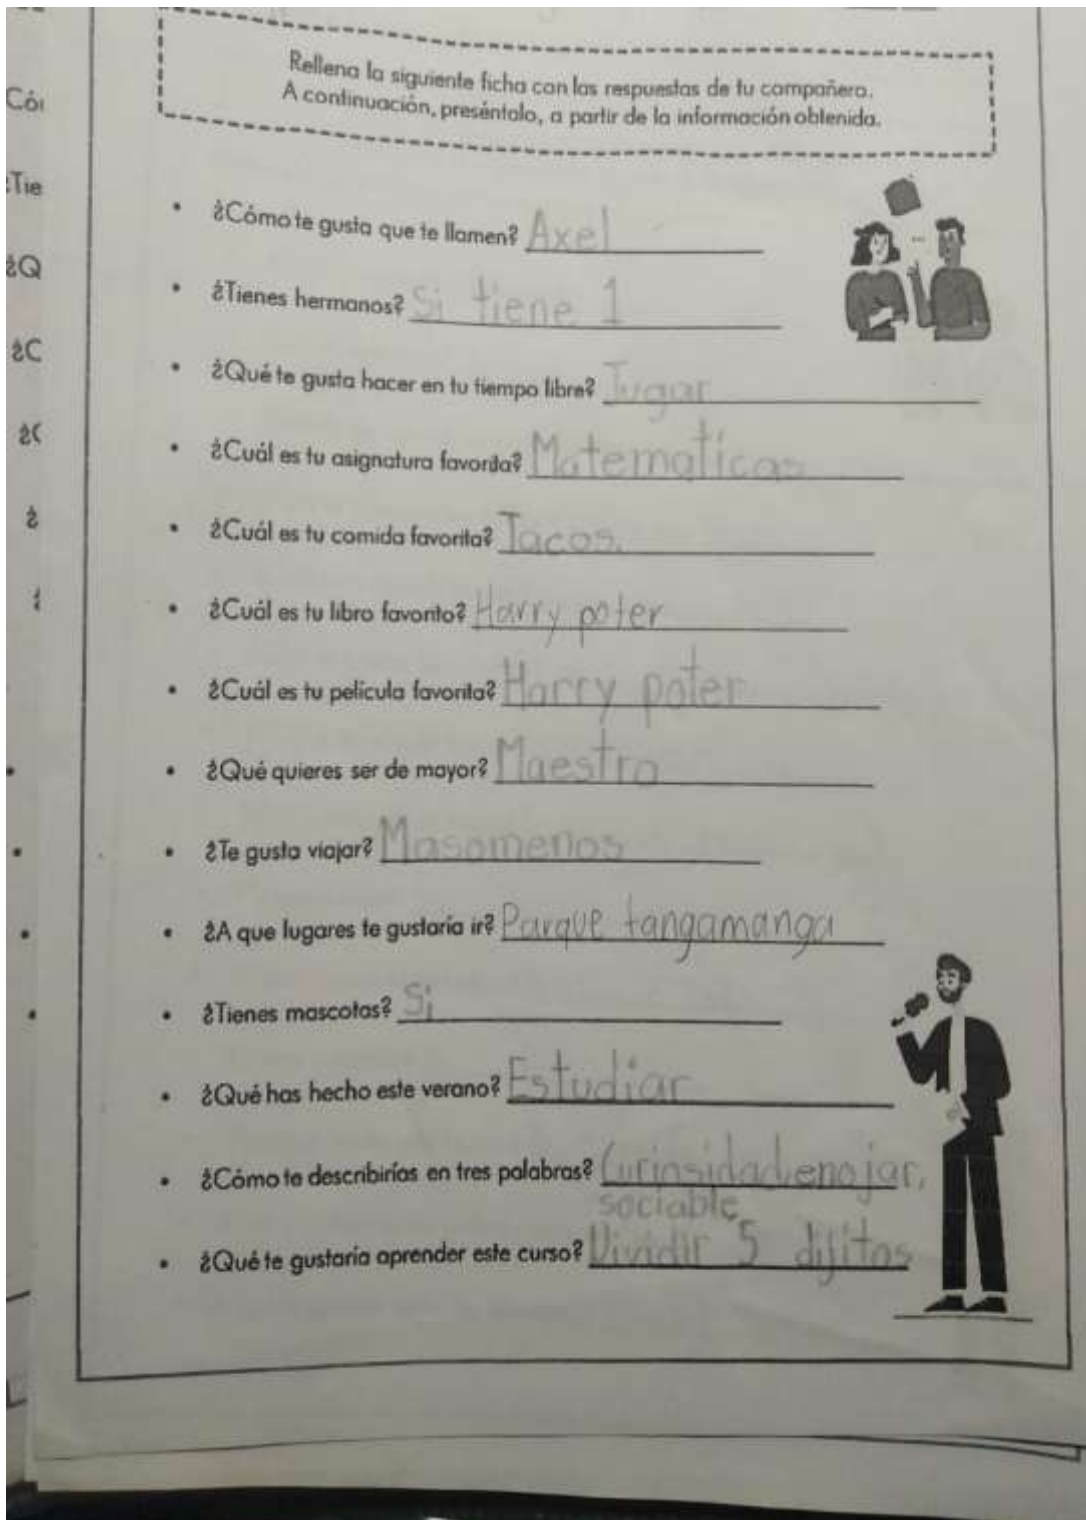 Rellena la siguiente ficha con las respuestas de tu compañero.
A continuación, preséntalo, a partir de la información obtenida.
Có
¿Tie
¿Q
¿C
¿C
¿
¿Cómo te gusta que te llamen? Axel
¿Tienes hermanos? Si tiene 1
¿Qué te gusta hacer en tu tiempo libre? Jugar
¿Cuál es tu asignatura favorita? Matematicas
¿Cuál es tu comida favorita? Tacos.
¿Cuál es tu libro favorito? Harry poter
¿Cuál es tu película favorita? Harry poter
¿Qué quieres ser de mayor? Maestro
¿Te gusta viajar? Masomenos
¿A que lugares te gustaría ir? Parque tangamanga
¿Tienes mascotas? Si
¿Qué has hecho este verano? Estudiar
¿Cómo te describirías en tres palabras? Curinsidad, enojar,
sociable
¿Qué te gustaría aprender este curso? Dividir 5 dijitos